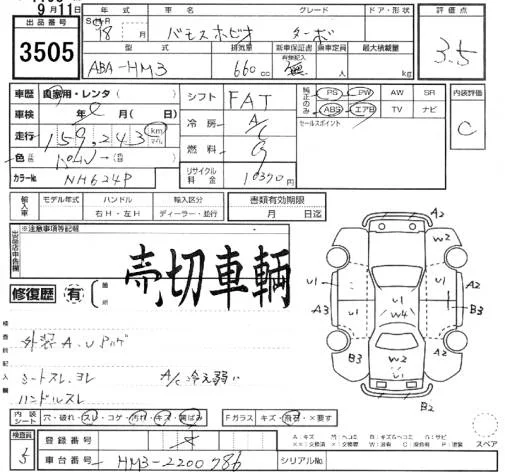 9月11日
出品番号
3505
年式
車名
グレード
ドア・形状
評価点
18 月
バモスホビオ ターボ
3.5
型式
排気量
新車保証書
乗車定員
最大積載量
有無記入
ABA-HM3
660 cc
無
人
kg
車歴 自家用・レンタ ( )
シフト FAT
純正のみ
PS PW AW SR
ABS エアB TV ナビ
内装評価
C
車検 年 月( 日)
冷房 A/C
セールスポイント
走行 159,243 km マイル
燃料 G
色
パール
カラーNo. NH624P
リサイクル料金 10370円
輸入車
モデル年式
ハンドル
輸入区分
書類有効期限
右H・左H
ディーラー・並行
月 日迄
出品店申告欄
※注意事項等記載
売切車輌
修復歴 有 箇所
検査員記入欄
外装A.Uアリ
シートスレ、ヨレ
A/C冷え弱い
ハンドルスレ
A2
W2
U1
U1
U1
U1
W4
A3
B3
B3
B2
W2
A2
B2
内装シート
穴・破れ・スレ・コゲ・汚れ・キズ・黄ばみ
Fガラス
キズ・飛石・×要す
スペア
検査員
5
登録番号
車台番号
HM3-2200786
シリアルNo.